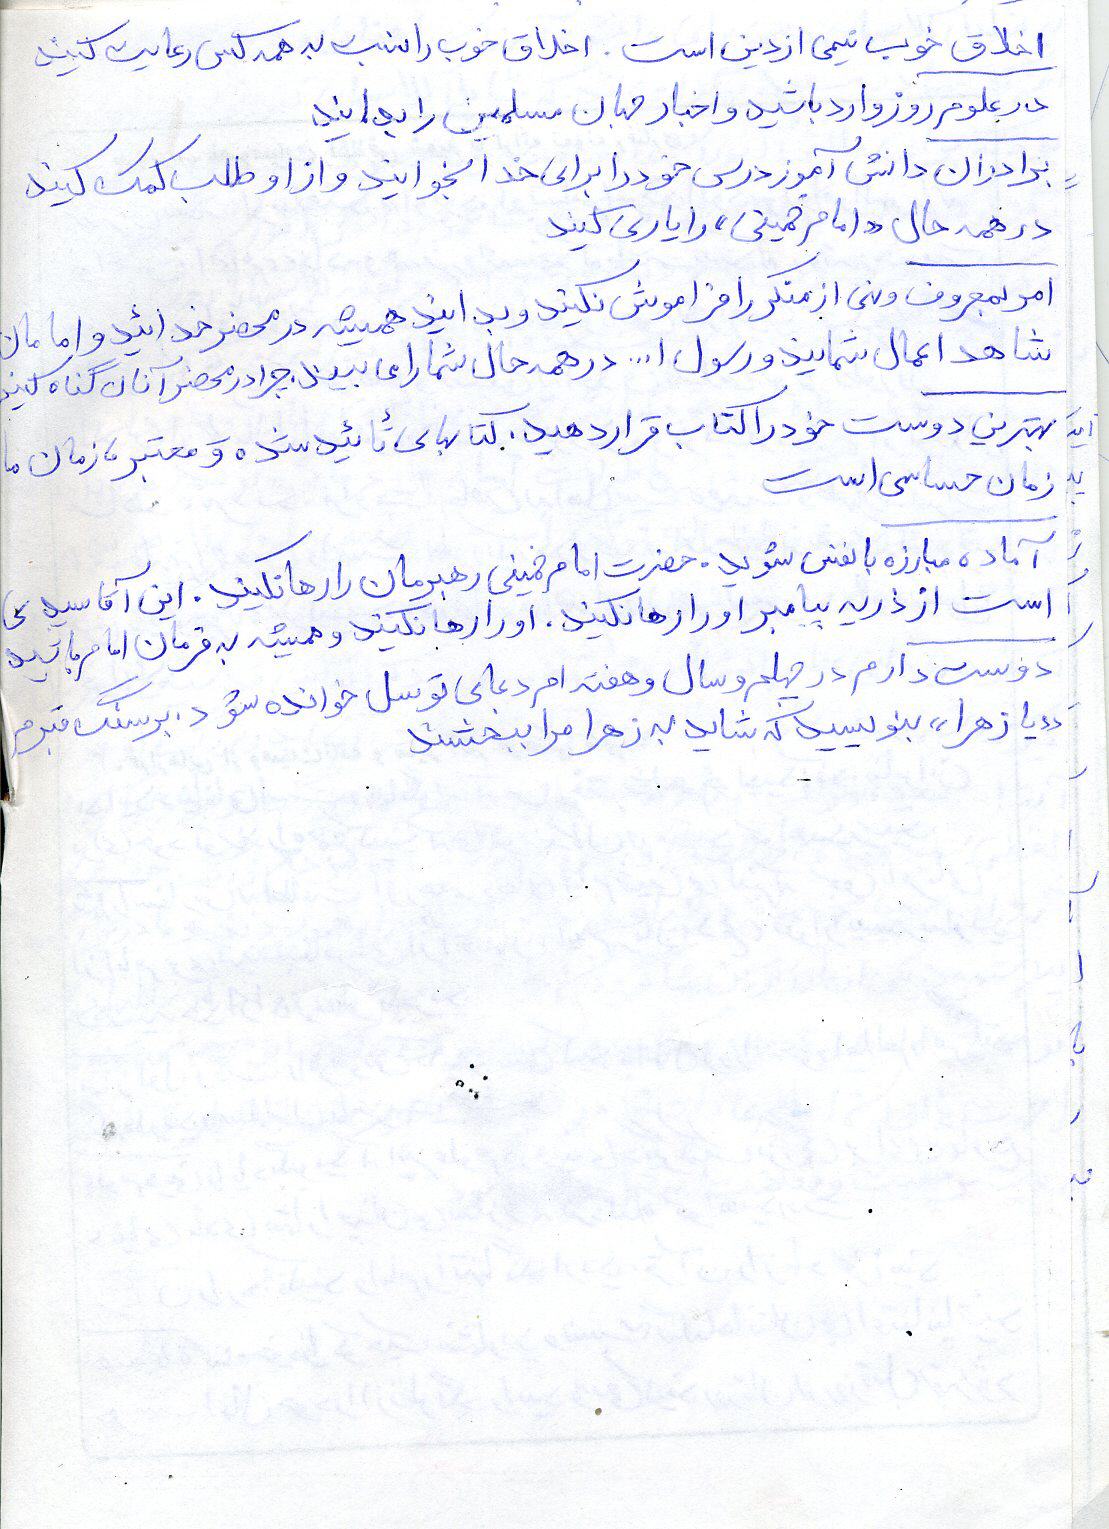 اخلاق خوب نیمی از دین است . اخلاق خوب را نسبت به همه کس رعایت کنید
در علوم روز وارد باشید و اخبار جهان مسلمین را بدانید
برادران دانش آموز درس خود را برای خدا بخوانید و از او طلب کمک کنید
در همه حال «امام خمینی» را یاری کنید
امر بمعروف و نهی از منکر را فراموش نکنید و بدانید همیشه در محضر خدائید و امامان
شاهد اعمال شمایند و رسول ا... در همه حال شما را می بیند. چرا در محضر آنان گناه کنید
بهترین دوست خود را کتاب قرار دهید. کتابهای تائید شده و معتبر، زمان ما
زمان حساسی است
آماده مبارزه با نفس شوید . حضرت امام خمینی رهبرمان را رها نکنید . این آقا سیدی
است از ذریه پیامبر او را رها نکنید . او را رها نکنید و همیشه به فرمان امام باشید
دوست دارم در چهلم و سال و هفته ام دعای توسل خوانده شود . بر سنگ قبرم
«یا زهرا» بنویسید که شاید به زهرا مرا ببخشند